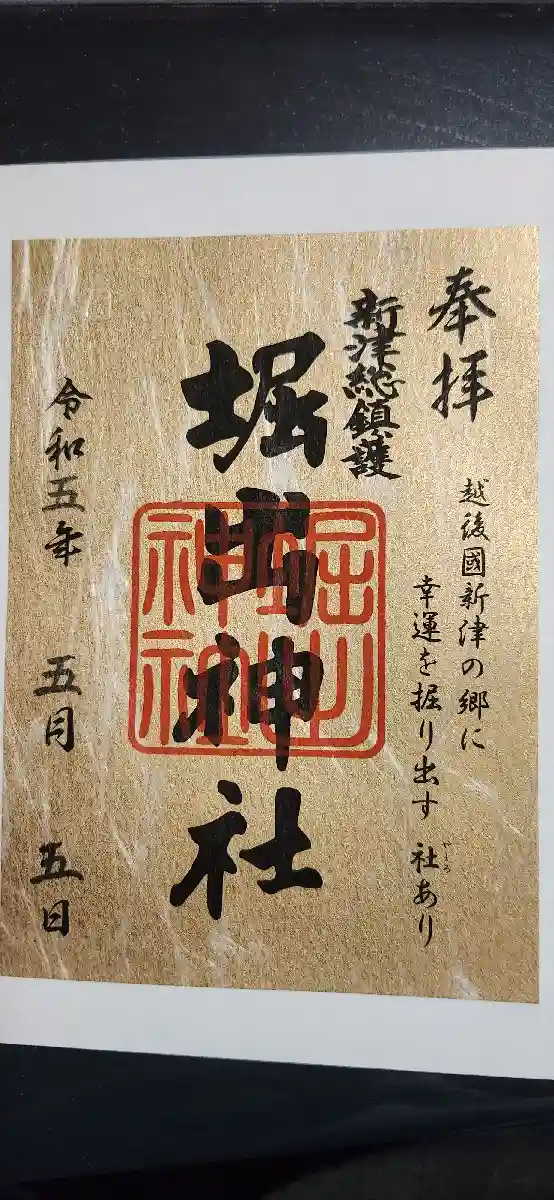 奉拝
越後國新津の郷に
幸運を掘り出す 社あり
やしろ
新津総鎮護
堀出神社
堀出神社
令和五年 五月 五日